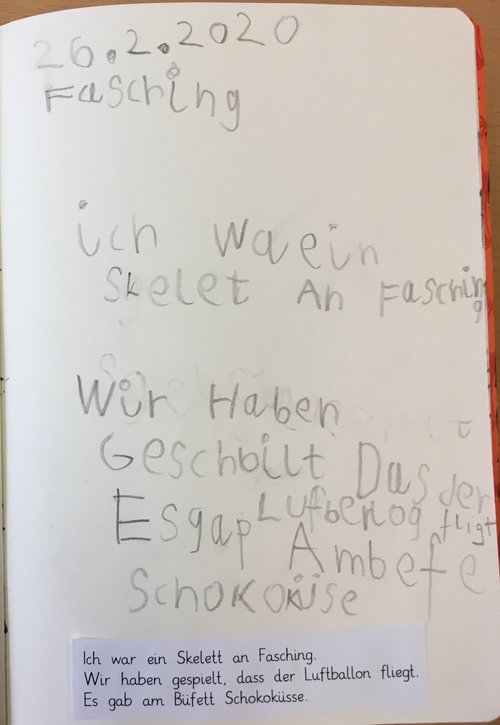 26.2.2020
Fasching
ich wa ein
Skelet An Faschin
g
Wir Haben
Geschbilt Das der
Lufbenlog fligt
Esgap Ambefe
Schokoküse
Ich war ein Skelett an Fasching.
Wir haben gespielt, dass der Luftballon fliegt.
Es gab am Büfett Schokoküsse.